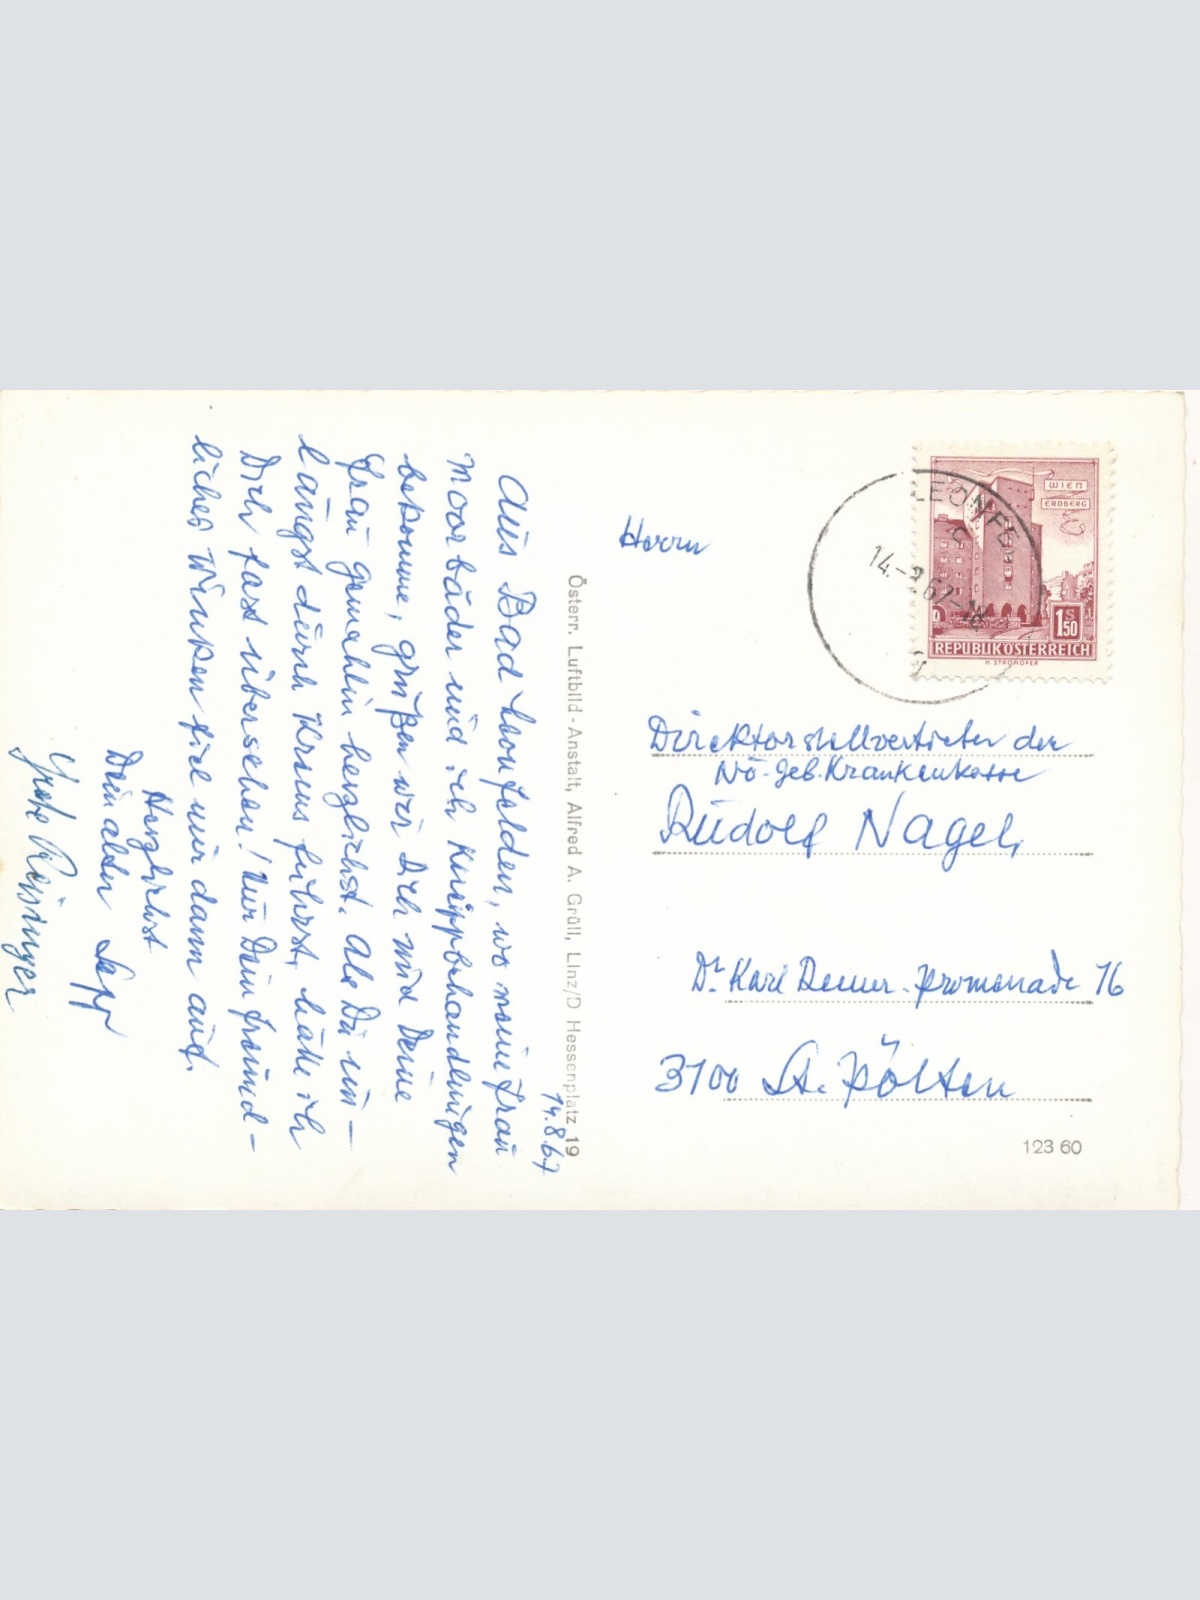 14.8.67
Aus Bad Leonfelden, wo meine Frau
Moorbäder und ich Kneippbehandlungen
bekomme, grüßen wir Dich und Deine
Frau Gemahlin herzlichst. Als Du un-
längst durch Krems fuhrst, hätte ich
Dich fast übersehen! Nur Dein freund-
liches Winken fiel mir dann auf.
Herzlichst
Dein alter Sepp
Grete Reisinger
Österr. Luftbild-Anstalt, Alfred A. Grüll, Linz/D Hessenplatz 19
LEONFE
c
14.-8.67-18
WIEN
ERDBERG
S
150
REPUBLIK ÖSTERREICH
H. STROHOFER
Herrn
Direktorstellvertreter der
NÖ-Geb.Krankenkasse
Rudolf Nagel,
Dr Karl Renner-Promenade 16
3100 St. Pölten
123 60